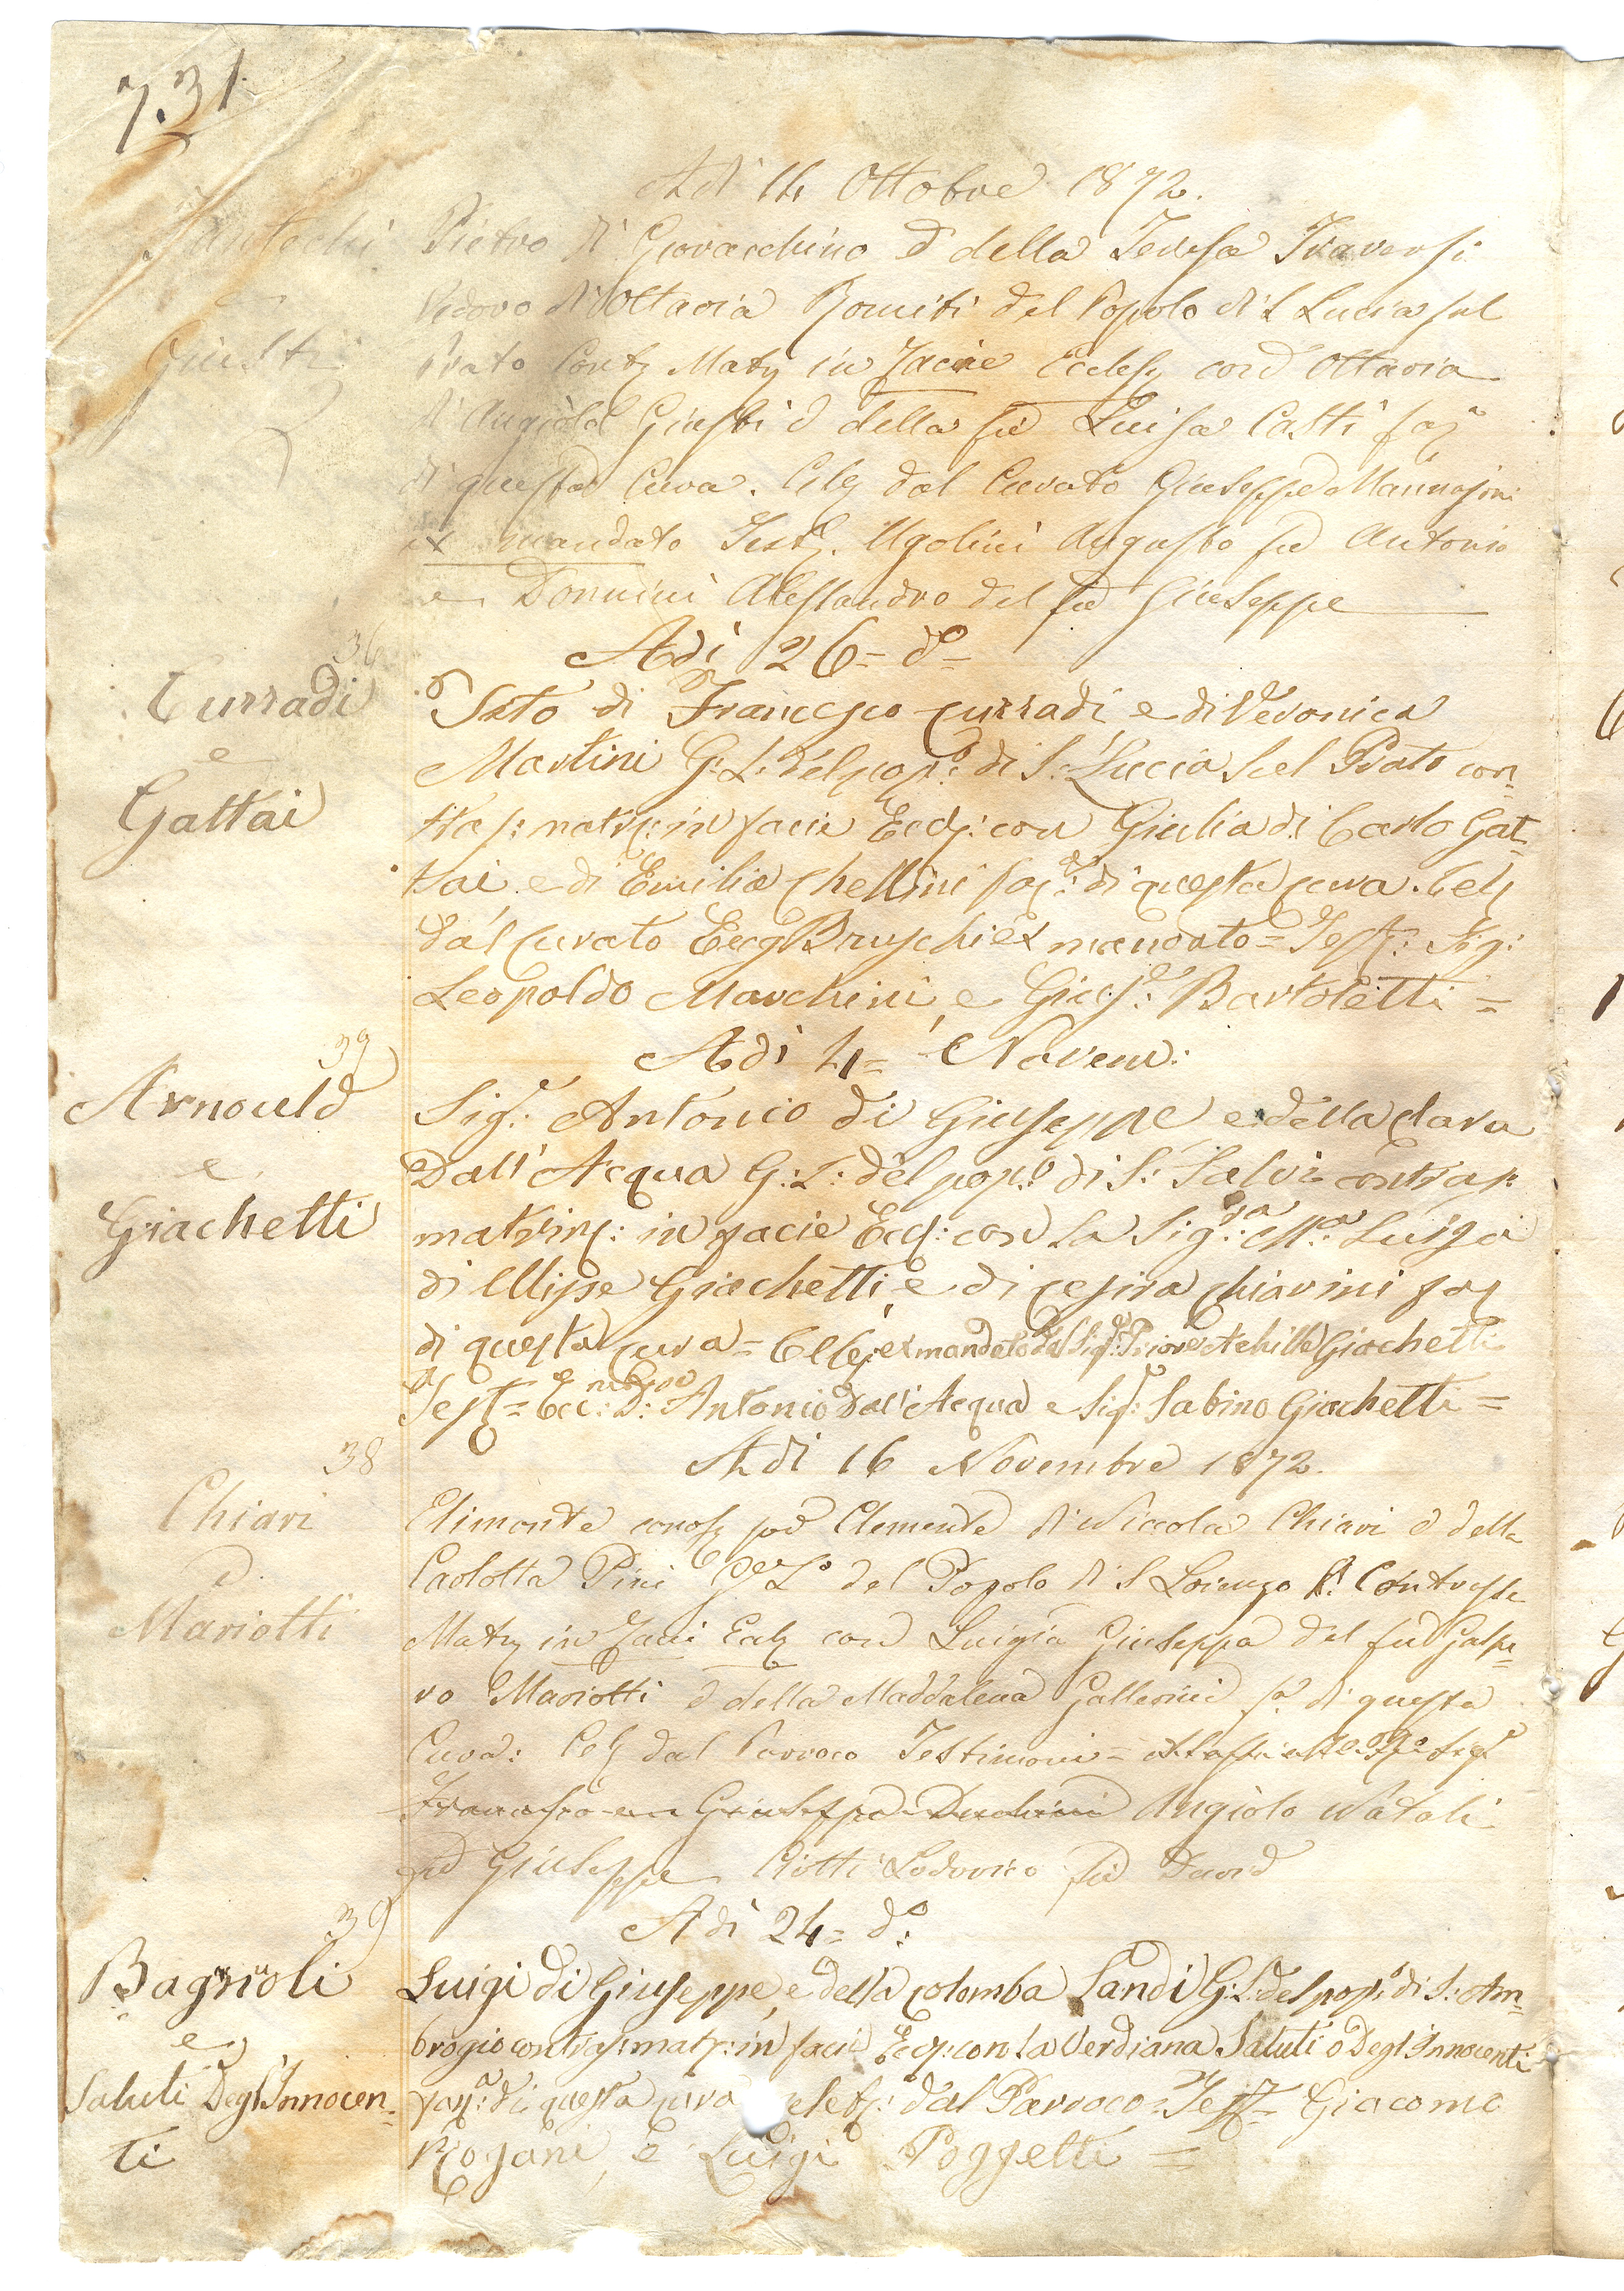 731
Adi 14 Ottobre 1872.
Pietro di Giovacchino e della Teresa Traversi
Vedovo di Ottavia Romiti del Popolo di S Lucia sul
Prato Contr Matr in facie Eccles con Ottavia
di Angiolo Giusti e della fu Luisa Casti fan
Giusti
di questa Cura. Cel dal Curato Giuseppe
ex mandato Test. Ugolini Augusto fu Antonio
e Donnini Alessandro del fu Giuseppe
36
Adi 26 = do =
Curradi
e
Gattai
di Francesco Curradi e di Veronica
Martini G: L: del pop:o di S: Lucia sul Prato con=
tras: matr: in facie Eccl: con Giulia di Carlo Gat=
tai e di Emilia Chellini fan: di questa cura. Cel
dal Curato Bruschi ex mandato = Test: Sig:
Leopoldo Marchini, e Gius:e Bartoletti =
37
Adi 4 = Novem:
Arnould
e
Giachetti
Sig.r Antonio di Giuseppe e della Clara
Dall'Acqua G: L: del pop:o di S: Salvi contras:
matrim: in facie Eccl: con la Sig:ra M:a Luisa
di Ulisse Giachetti, e di Cesira Chiarini fan
di questa cura = Cel ex mandato del Sig: Priore Achille Giachetti
Test = Ecc: D: Antonio Dall'Acqua e Sig: Sabino Giachetti =
38
Adi 16 Novembre 1872.
Chiari
e
Mariotti
Elimonte conos per Clemente di Niccola Chiari e della
Carlotta Pini G L del Popolo di S Lorenzo Contrasse
Matr in Facie Eccl con Luigia Giuseppa del fu Gaspe=
ro Mariotti e della Maddalena Gallerini fa di questa
Cura: Cel dal Parroco Testimoni =
Angiolo Natali
fu Giuseppe Ciotti Lodovico fu David
39
Adi 24 = do:
Bagnoli
e
Saluti Degl'Innocen=
ti
Luigi di Giuseppe, e della Colomba Landi G: L: del pop:o di S: Am=
brogio contras: matr: in facie Eccl: con la Verdiana Saluti o Degl'Innocenti
fan: di questa cura celeb: dal Parroco = Test = Giacomo
Rogani, e Luigi Poggetti =